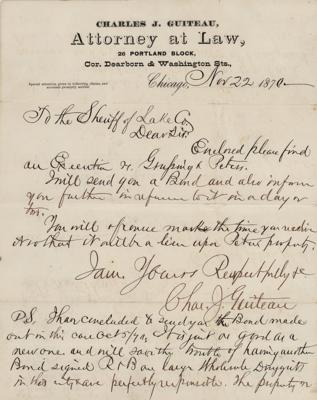 CHARLES J. GUITEAU,
Attorney at Law,
26 PORTLAND BLOCK,
Cor. Dearborn & Washington Sts.,
Special attention given to collecting claims and
accounts promptly settled
Chicago, Nov 22 1870
To the Sheriff of Lake Co
Dear Sir,
Enclosed please find
an Execution vs. &  Peters.
I will send you a Bond and also inform
you further in reference to it in a day or
two.
You will of course mark the time you receive
it so that it will be a lien upon Peters property.
I am Yours Respectfully &c
Chas. J. Guiteau
P.S. I have concluded to send you the Bond made
out in this case Oct 5/70. It is just as good as a
new one and will save the trouble of having another
Bond signed R & B are large Wholesale Druggists
in this city &are perfectly responsible. The deputy or